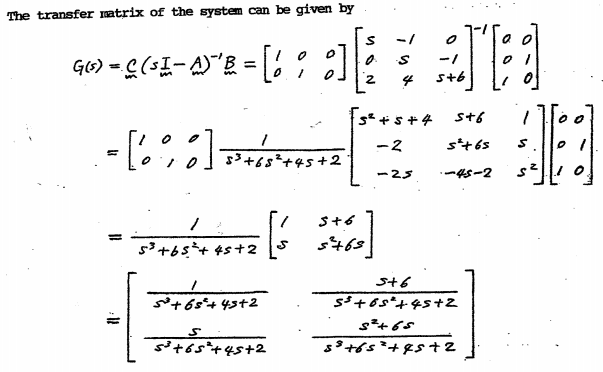 The transfer matrix of the system can be given by
G(s) = C (sI - A)⁻¹ B = [1 0 0; 0 1 0] [s -1 0; 0 s -1; 2 4 s+6]⁻¹ [0 0; 0 1; 1 0]
= [1 0 0; 0 1 0] 1/(s³+6s²+4s+2) [s²+s+4 s+6 1; -2 s²+6s s; -2s -4s-2 s²] [0 0; 0 1; 1 0]
= 1/(s³+6s²+4s+2) [1 s+6; s s²+6s]
= [1/(s³+6s²+4s+2) (s+6)/(s³+6s²+4s+2); s/(s³+6s²+4s+2) (s²+6s)/(s³+6s²+4s+2)]